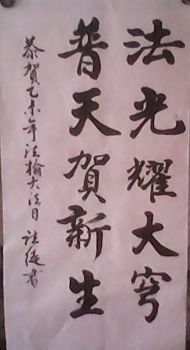 法光耀大穹
普天賀新生
恭賀乙未年法輪大法日 詿徒書